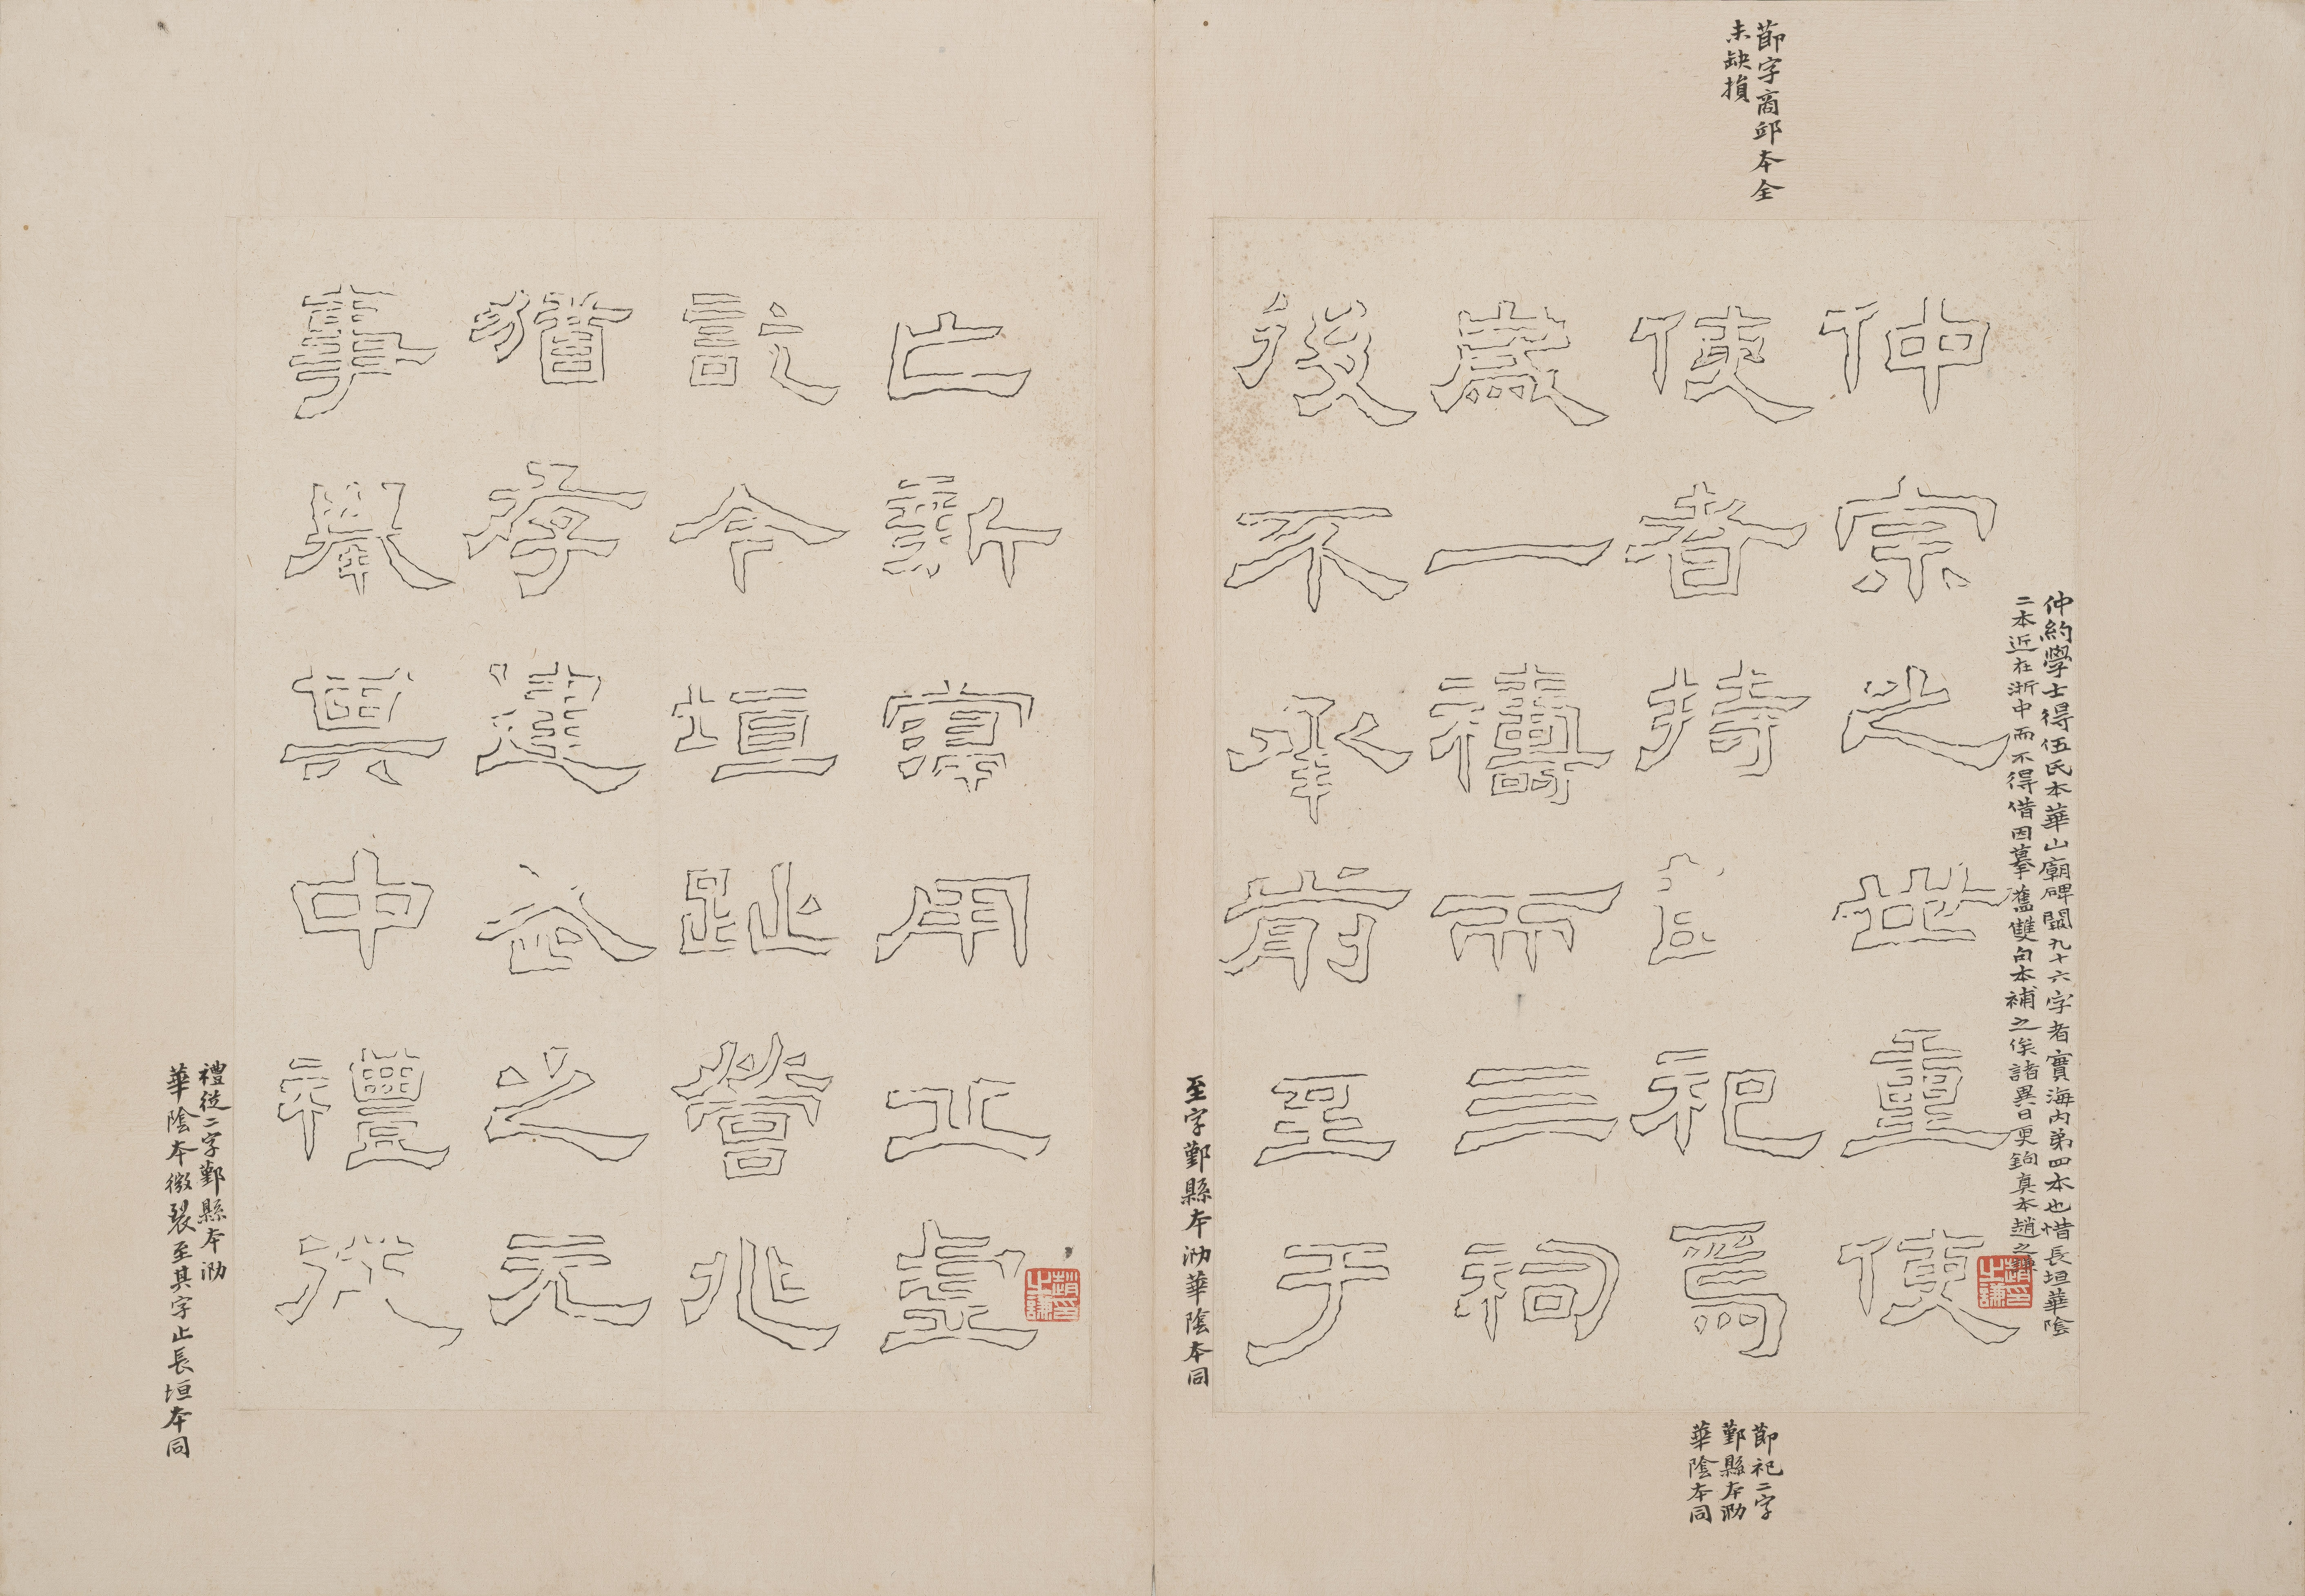 節字商邱本全
未缺損
仲約學士得伍氏本華山廟碑闕九十六字者實海内弟四本也惜長垣華陰
二本近在浙中而不得借因摹舊雙句本補之俟諸異日更鉤真本趙之謙
趙印之謙
仲宗之世重使
使者持節祀焉
歲一禱而三祠
後不承前至于
節祀二字
鄞縣本泐
華陰本同
至字鄞縣本泐華陰本同
亡新寖用丘虛
訖今垣趾營兆
猶存建武之元
事舉其中禮從
趙印之謙
禮從二字鄞縣本泐
華陰本微裂至其字止長垣本同